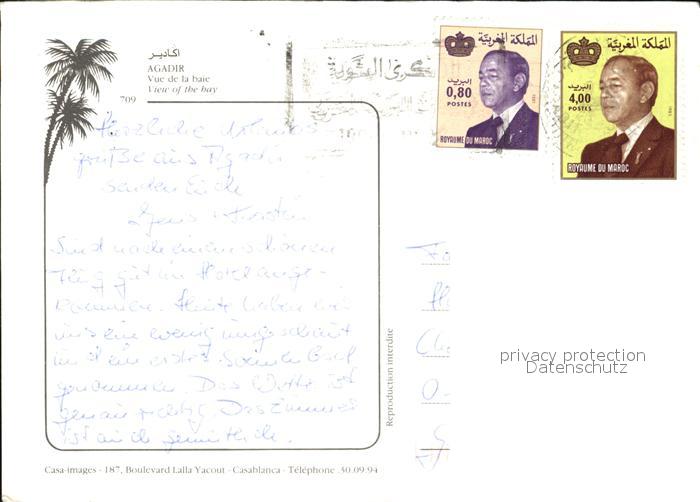 اكادير
AGADIR
Vue de la baie
View of the bay
709
المملكة المغربية
البريد
0,80
POSTES
ROYAUME DU MAROC
المملكة المغربية
البريد
4,00
POSTES
ROYAUME DU MAROC
Herzliche Urlaubs-
grüße aus Agadir
senden Euch
Sind nach einem schönen
Flug gut im Hotel ange-
kommen. Heute haben wir
uns ein wenig umgeschaut
und ein erstes Sonnenbad
genommen. Das Wetter ist
genau richtig. Das Zimmer
ist auch gemütlich.
Reproduction interdite
privacy protection
Datenschutz
Casa-images - 187, Boulevard Lalla Yacout - Casablanca - Téléphone .30.09.94